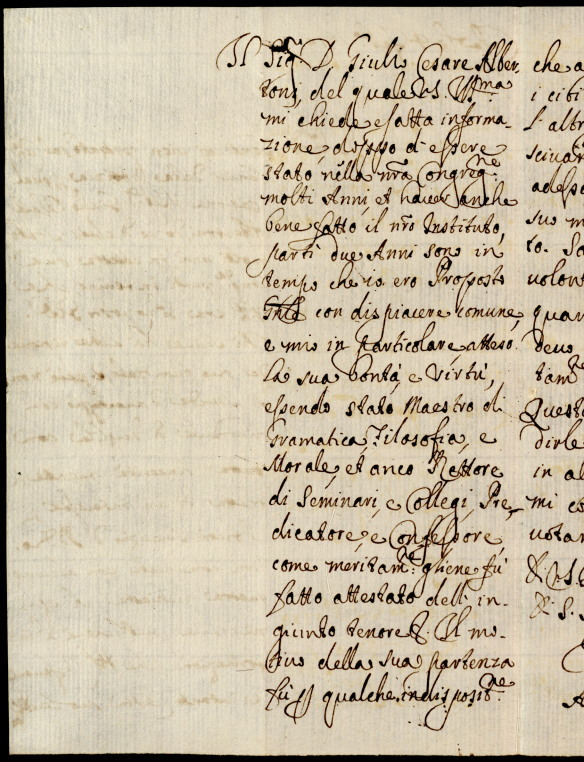 Il Sigr D. Giulio Cesare Alber-
toni, del quale V.S. Illma
mi chiede esatta informa-
zione, doppo d'essere
stato nella nra Congregne
molti Anni, et haver anche
bene fatto il nro Instituto,
partì due Anni sono in
tempo che io ero Proposto
con dispiacere comune,
e mio in particolare, atteso
la sua bontà, e virtù,
essendo stato Maestro di
Gramatica, Filosofia, e
Morale, et anco Rettore
di Seminari, e Collegi, Pre-
dicatore, e Confessore,
come meritamte: gliene fù
fatto attestato dell' in-
giunto tenore &. Il mo-
tivo della sua partenza
fù qualche indispositne
che a
i citi
l'altr
adesso
suo m
to. So
volont
quan
devo
tamte
Questo
dirle
in al
mi co
votam